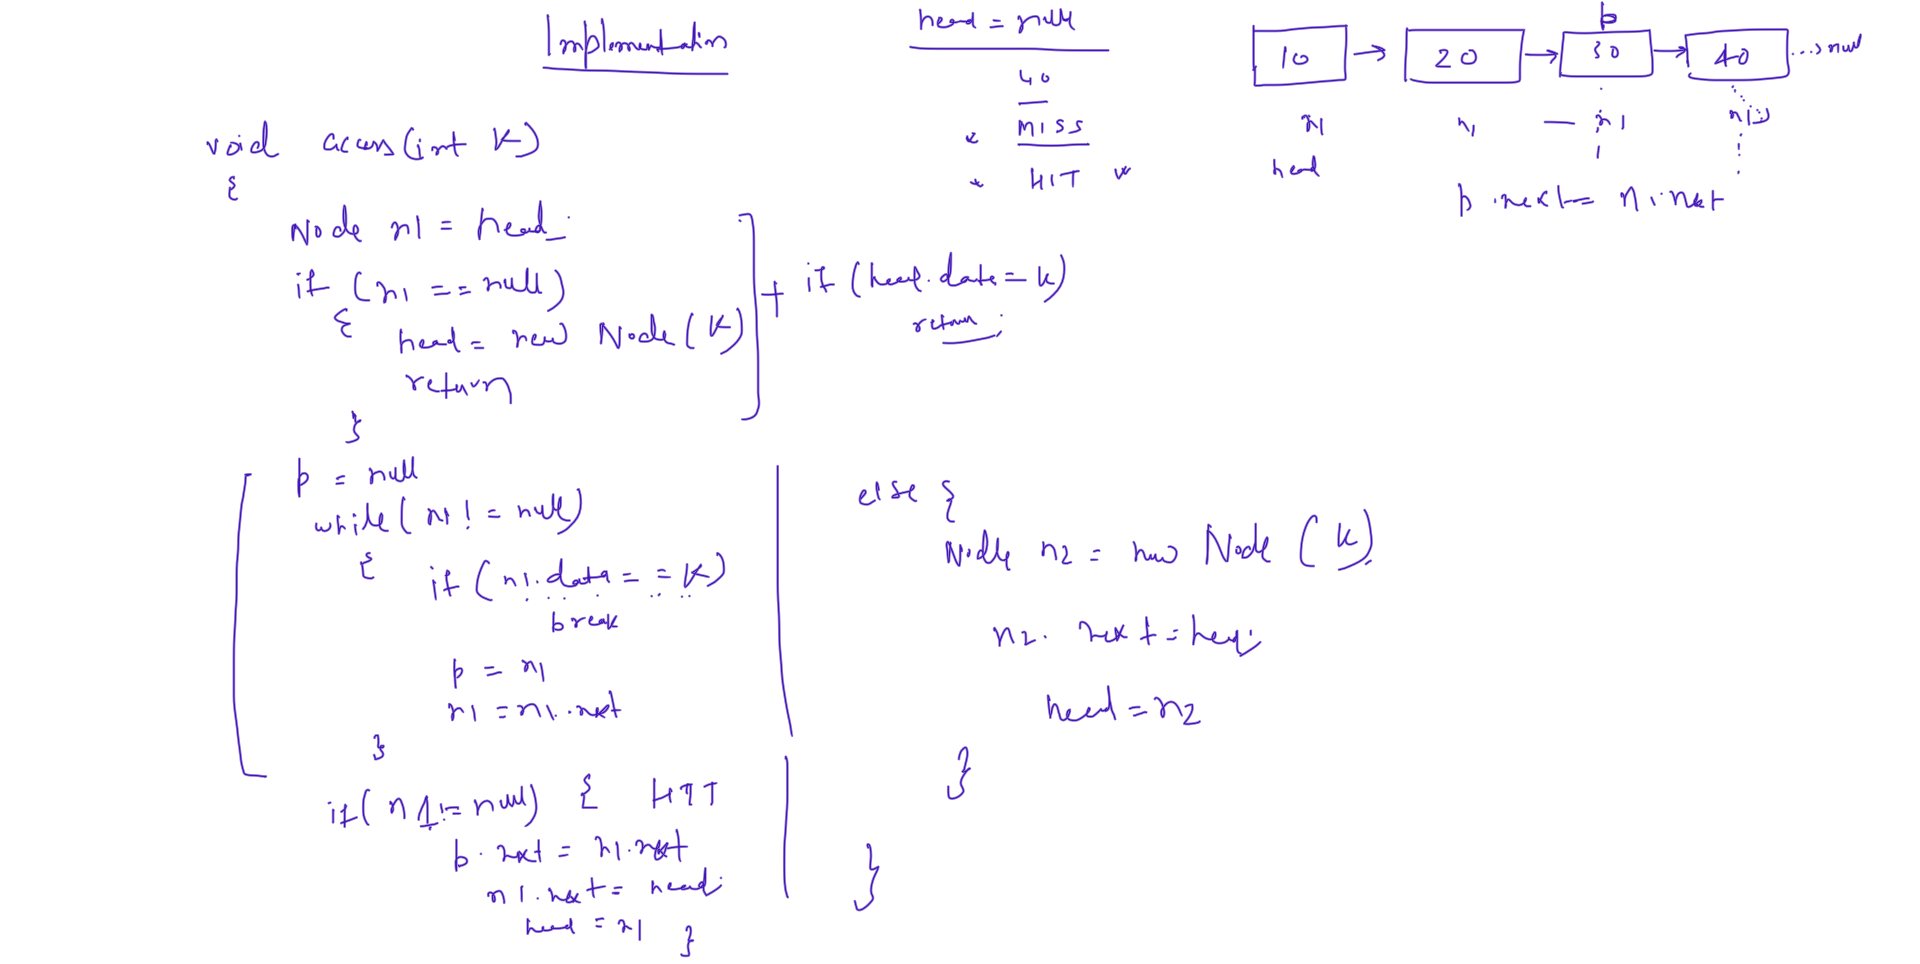 Implementation
head = null
40
MISS
HIT
p
10 → 20 → 30 → 40 ...> null
n1 n1 — n1 n1
head
p.next = n1.next
void access(int K)
{
Node n1 = head;
if (n1 == null)
{
head = new Node(K)
return
}
+ if (head.data = k)
return;
p = null
while(n1 != null)
{
if (n1.data == K)
break
p = n1
n1 = n1.next
}
if(n1 != null) { HIT
p.next = n1.next
n1.next = head;
head = n1
}
else {
Node n2 = new Node (K);
n2. next = head;
head = n2
}
}